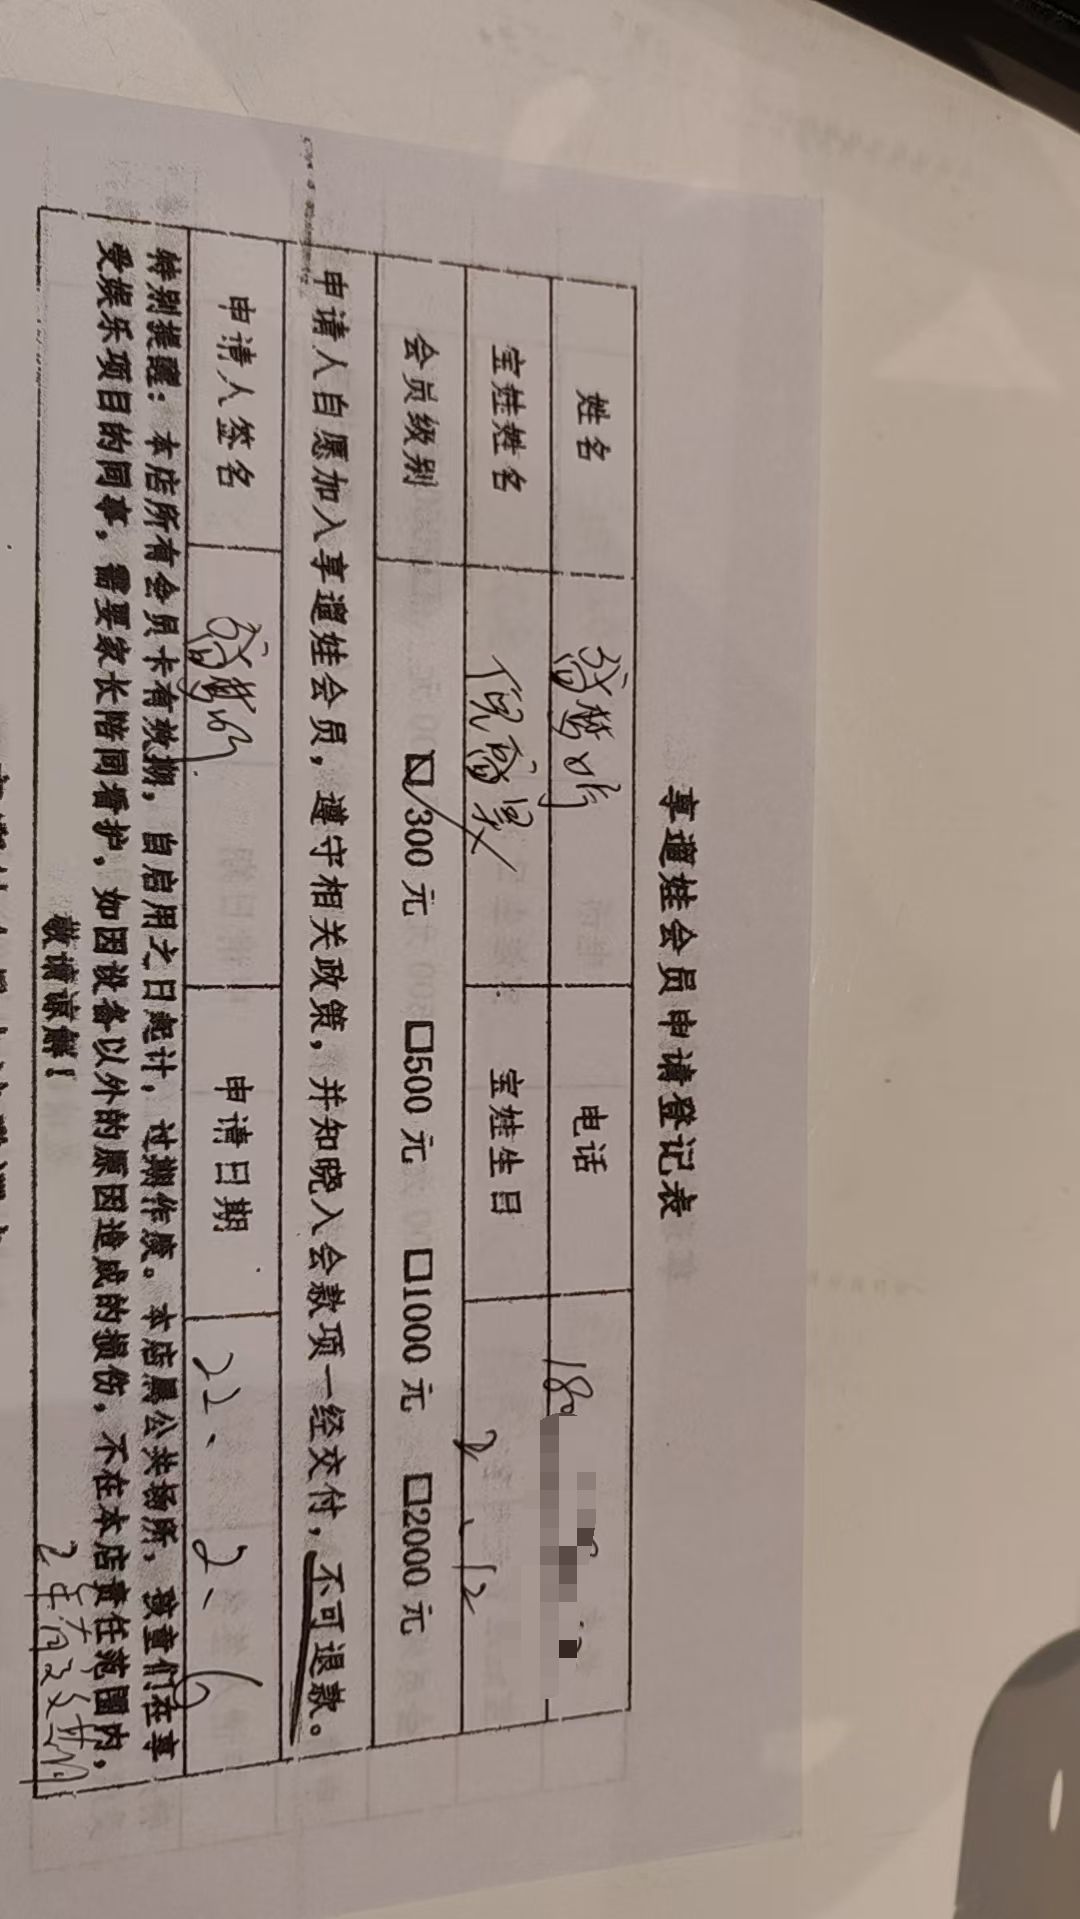 享遛娃会员申请登记表
姓名 电话 180
宝娃姓名 宝娃生日 2、12
会员级别 ☑300 元 □500 元 □1000 元 □2000 元
申请人自愿加入享遛娃会员，遵守相关政策，并知晓入会款项一经交付，不可退款。
申请人签名 申请日期 22、2、6
特别提醒：本店所有会员卡有效期，自启用之日起计，过期作废。本店属公共场所，孩童们在享
受娱乐项目的同事，需要家长陪同看护，如因设备以外的原因造成的损伤，不在本店责任范围内，
敬请谅解！
2年有效期